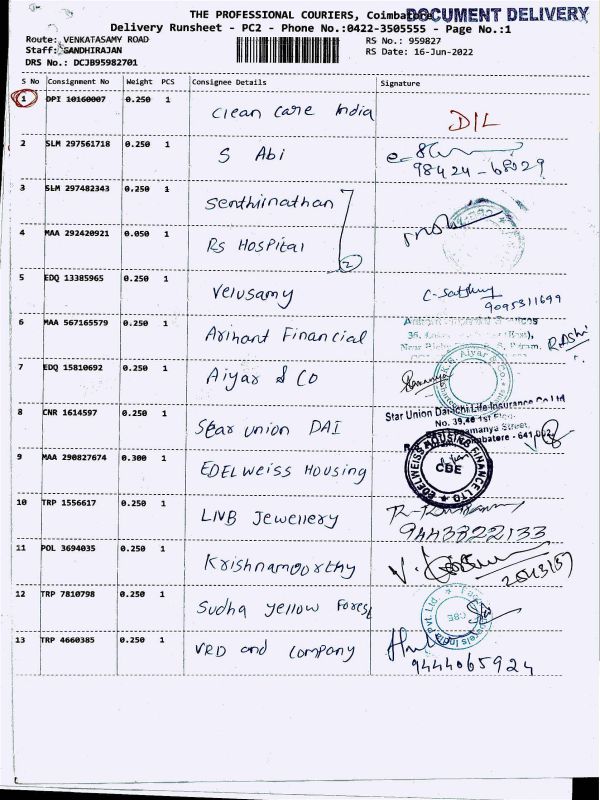 THE PROFESSIONAL COURIERS, Coimbatore
DOCUMENT DELIVERY
Delivery Runsheet - PC2 - Phone No.:0422-3505555 - Page No.:1
Route: VENKATASAMY ROAD
RS No.: 959827
Staff: GANDHIRAJAN
RS Date: 16-Jun-2022
DRS No.: DCJB95982701
S No Consignment No Weight PCS Consignee Details Signature
1 DPI 10160007 0.250 1 Clean Care India DIL
2 SLM 297561718 0.250 1 S Abi
98424-68029
3 SLM 297482343 0.250 1 Senthilnathan
4 MAA 292420921 0.050 1 RS Hospital
2
5 EDQ 13385965 0.250 1 Velusamy
9095311699
6 MAA 567165579 0.250 1 Arihant Financial
RASHI
7 EDQ 15810692 0.250 1 Aiyar & Co
Aiyar & Co.
8 CNR 1614597 0.250 1 Star union DAI
Star Union Dai-ichi Life Insurance Co Ltd
No. 39,40 1st Floor
9 MAA 290827674 0.300 1 EDELweiss Housing
EDELWEISS HOUSING FINANCE LTD
CBE
10 TRP 1556617 0.250 1 LNB Jewellery
9443822133
11 POL 3694035 0.250 1 Krishnamoorthy
12 TRP 7810798 0.250 1 Sudha Yellow Forest
CBE
13 TRP 4660385 0.250 1 VRD and Company
9444065924